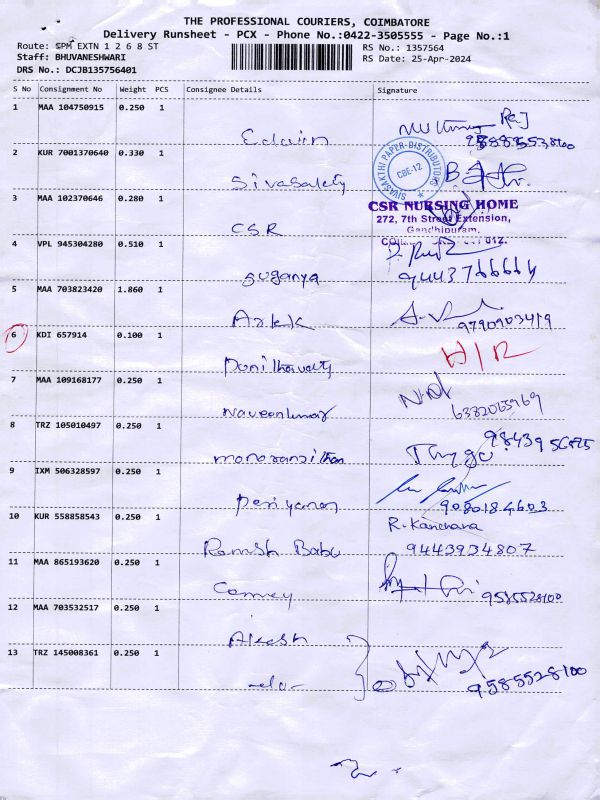 THE PROFESSIONAL COURIERS, COIMBATORE
Delivery Runsheet - PCX - Phone No.:0422-3505555 - Page No.:1
Route: SPM EXTN 1 2 6 8 ST
RS No.: 1357564
Staff: BHUVANESHWARI
RS Date: 25-Apr-2024
DRS No.: DCJB135756401
S No Consignment No Weight PCS Consignee Details Signature
1 MAA 104750915 0.250 1
Edwin
2 KUR 7001370640 0.330 1
SIVASAKTHI PAPER-DISTRIBUTORS
CBE-12
Sivasakty
3 MAA 102370646 0.280 1
CSR NURSING HOME
272, 7th Street Extension,
Gandhipuram,
CSR
4 VPL 945304280 0.510 1
Suganya
9443766664
5 MAA 703823420 1.860 1
9790903419
6 KDI 657914 0.100 1
7 MAA 109168177 0.250 1
6382065969
Naveenkumar
8 TRZ 105010497 0.250 1
manoranjithan
9 IXM 506328597 0.250 1
9080184603
10 KUR 558858543 0.250 1
R. Kanchana
Ramesh Babu
9443934807
11 MAA 865193620 0.250 1
9585528100
12 MAA 703532517 0.250 1
Akash
13 TRZ 145008361 0.250 1
-do-
9585528100